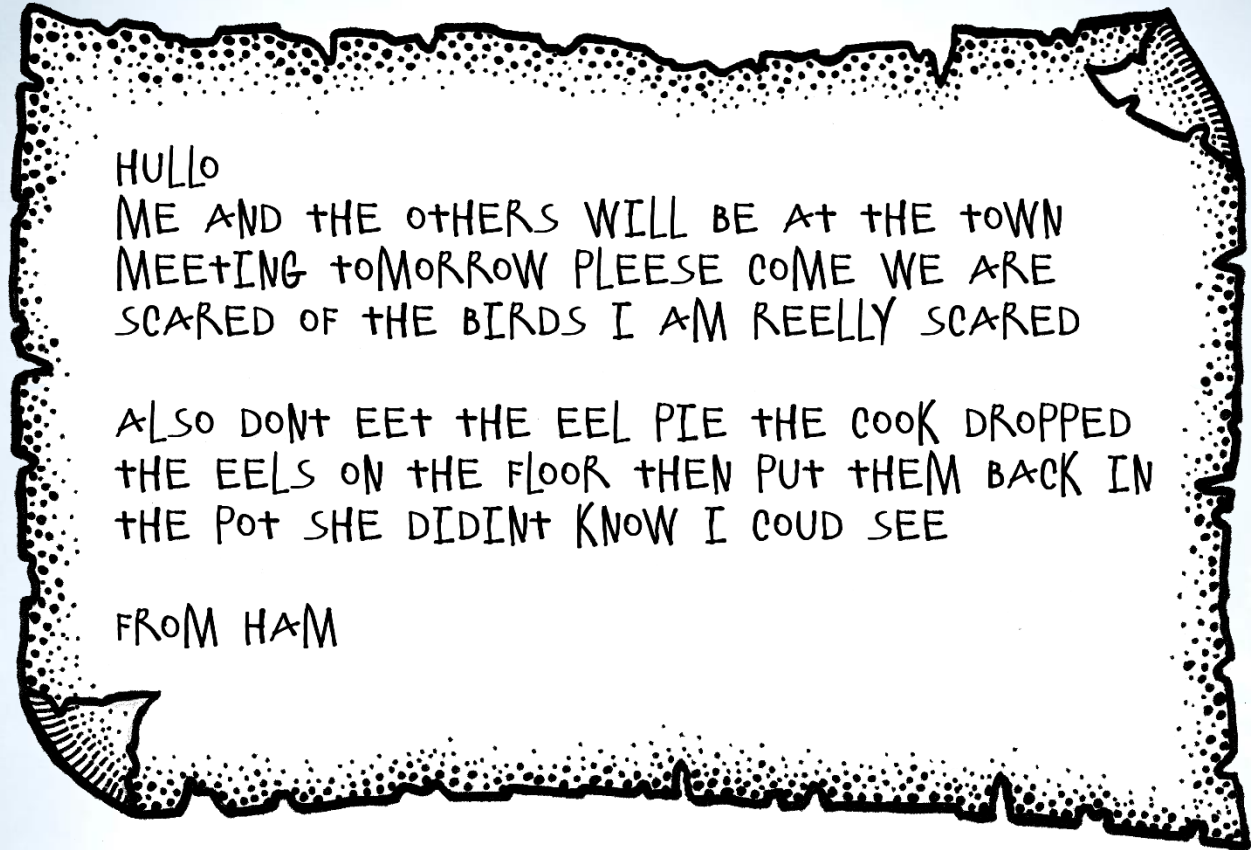 HULLO
ME AND THE OTHERS WILL BE AT THE TOWN
MEETING TOMORROW PLEESE COME WE ARE
SCARED OF THE BIRDS I AM REELLY SCARED
ALSO DONT EET THE EEL PIE THE COOK DROPPED
THE EELS ON THE FLOOR THEN PUT THEM BACK IN
THE POT SHE DIDINT KNOW I COUD SEE
FROM HAM